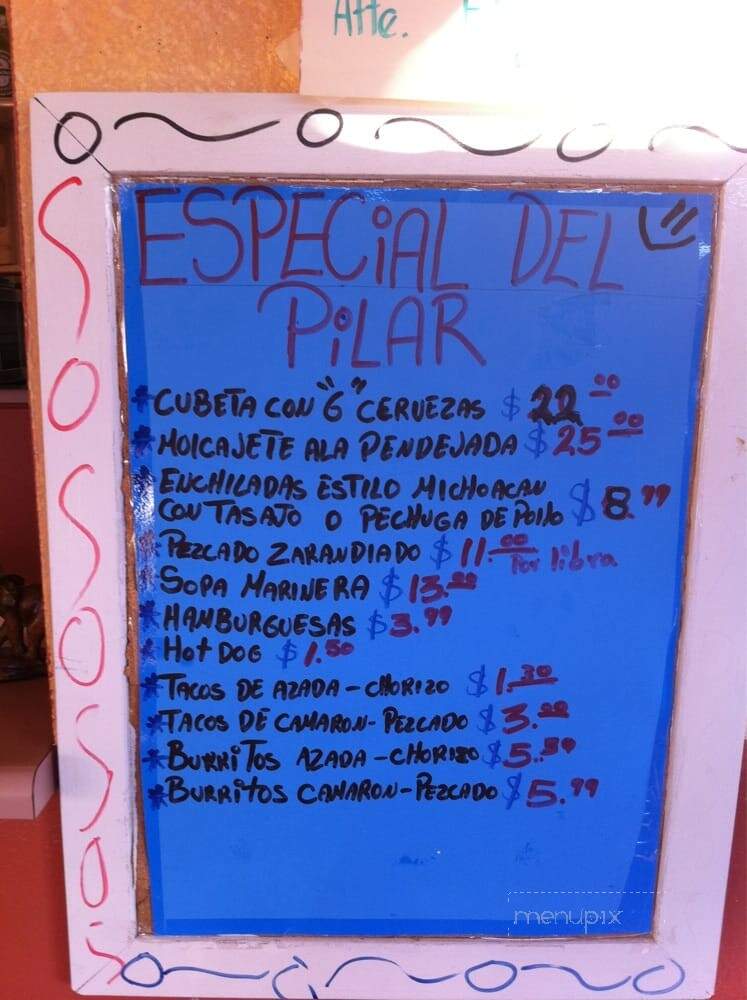 Atte.
ESPECiAL DEL
PiLAR
* CUBETA CON "6" CERVEZAS $ 22.00
* MOLCAJETE ALA PENDEJADA $ 25.00
* ENCHILADAS ESTILO MICHOACAN
CON TASAJO O PECHUGA DE POllO $ 8.99
* PEZCADO ZARANDIADO $ 11.00 Por libra
SOPA MARINERA $ 13.00
* HAMBURGUESAS $ 3.99
* Hot DOG $ 1.50
* TACOS DE AZADA - CHORIZO $ 1.30
* TACOS DE CAMARON - PEZCADO $ 3.00
* BURRiTOS AZADA - CHORIZO $ 5.50
* BURRitOS CAMARON - PEZCADO $ 5.99
menupix